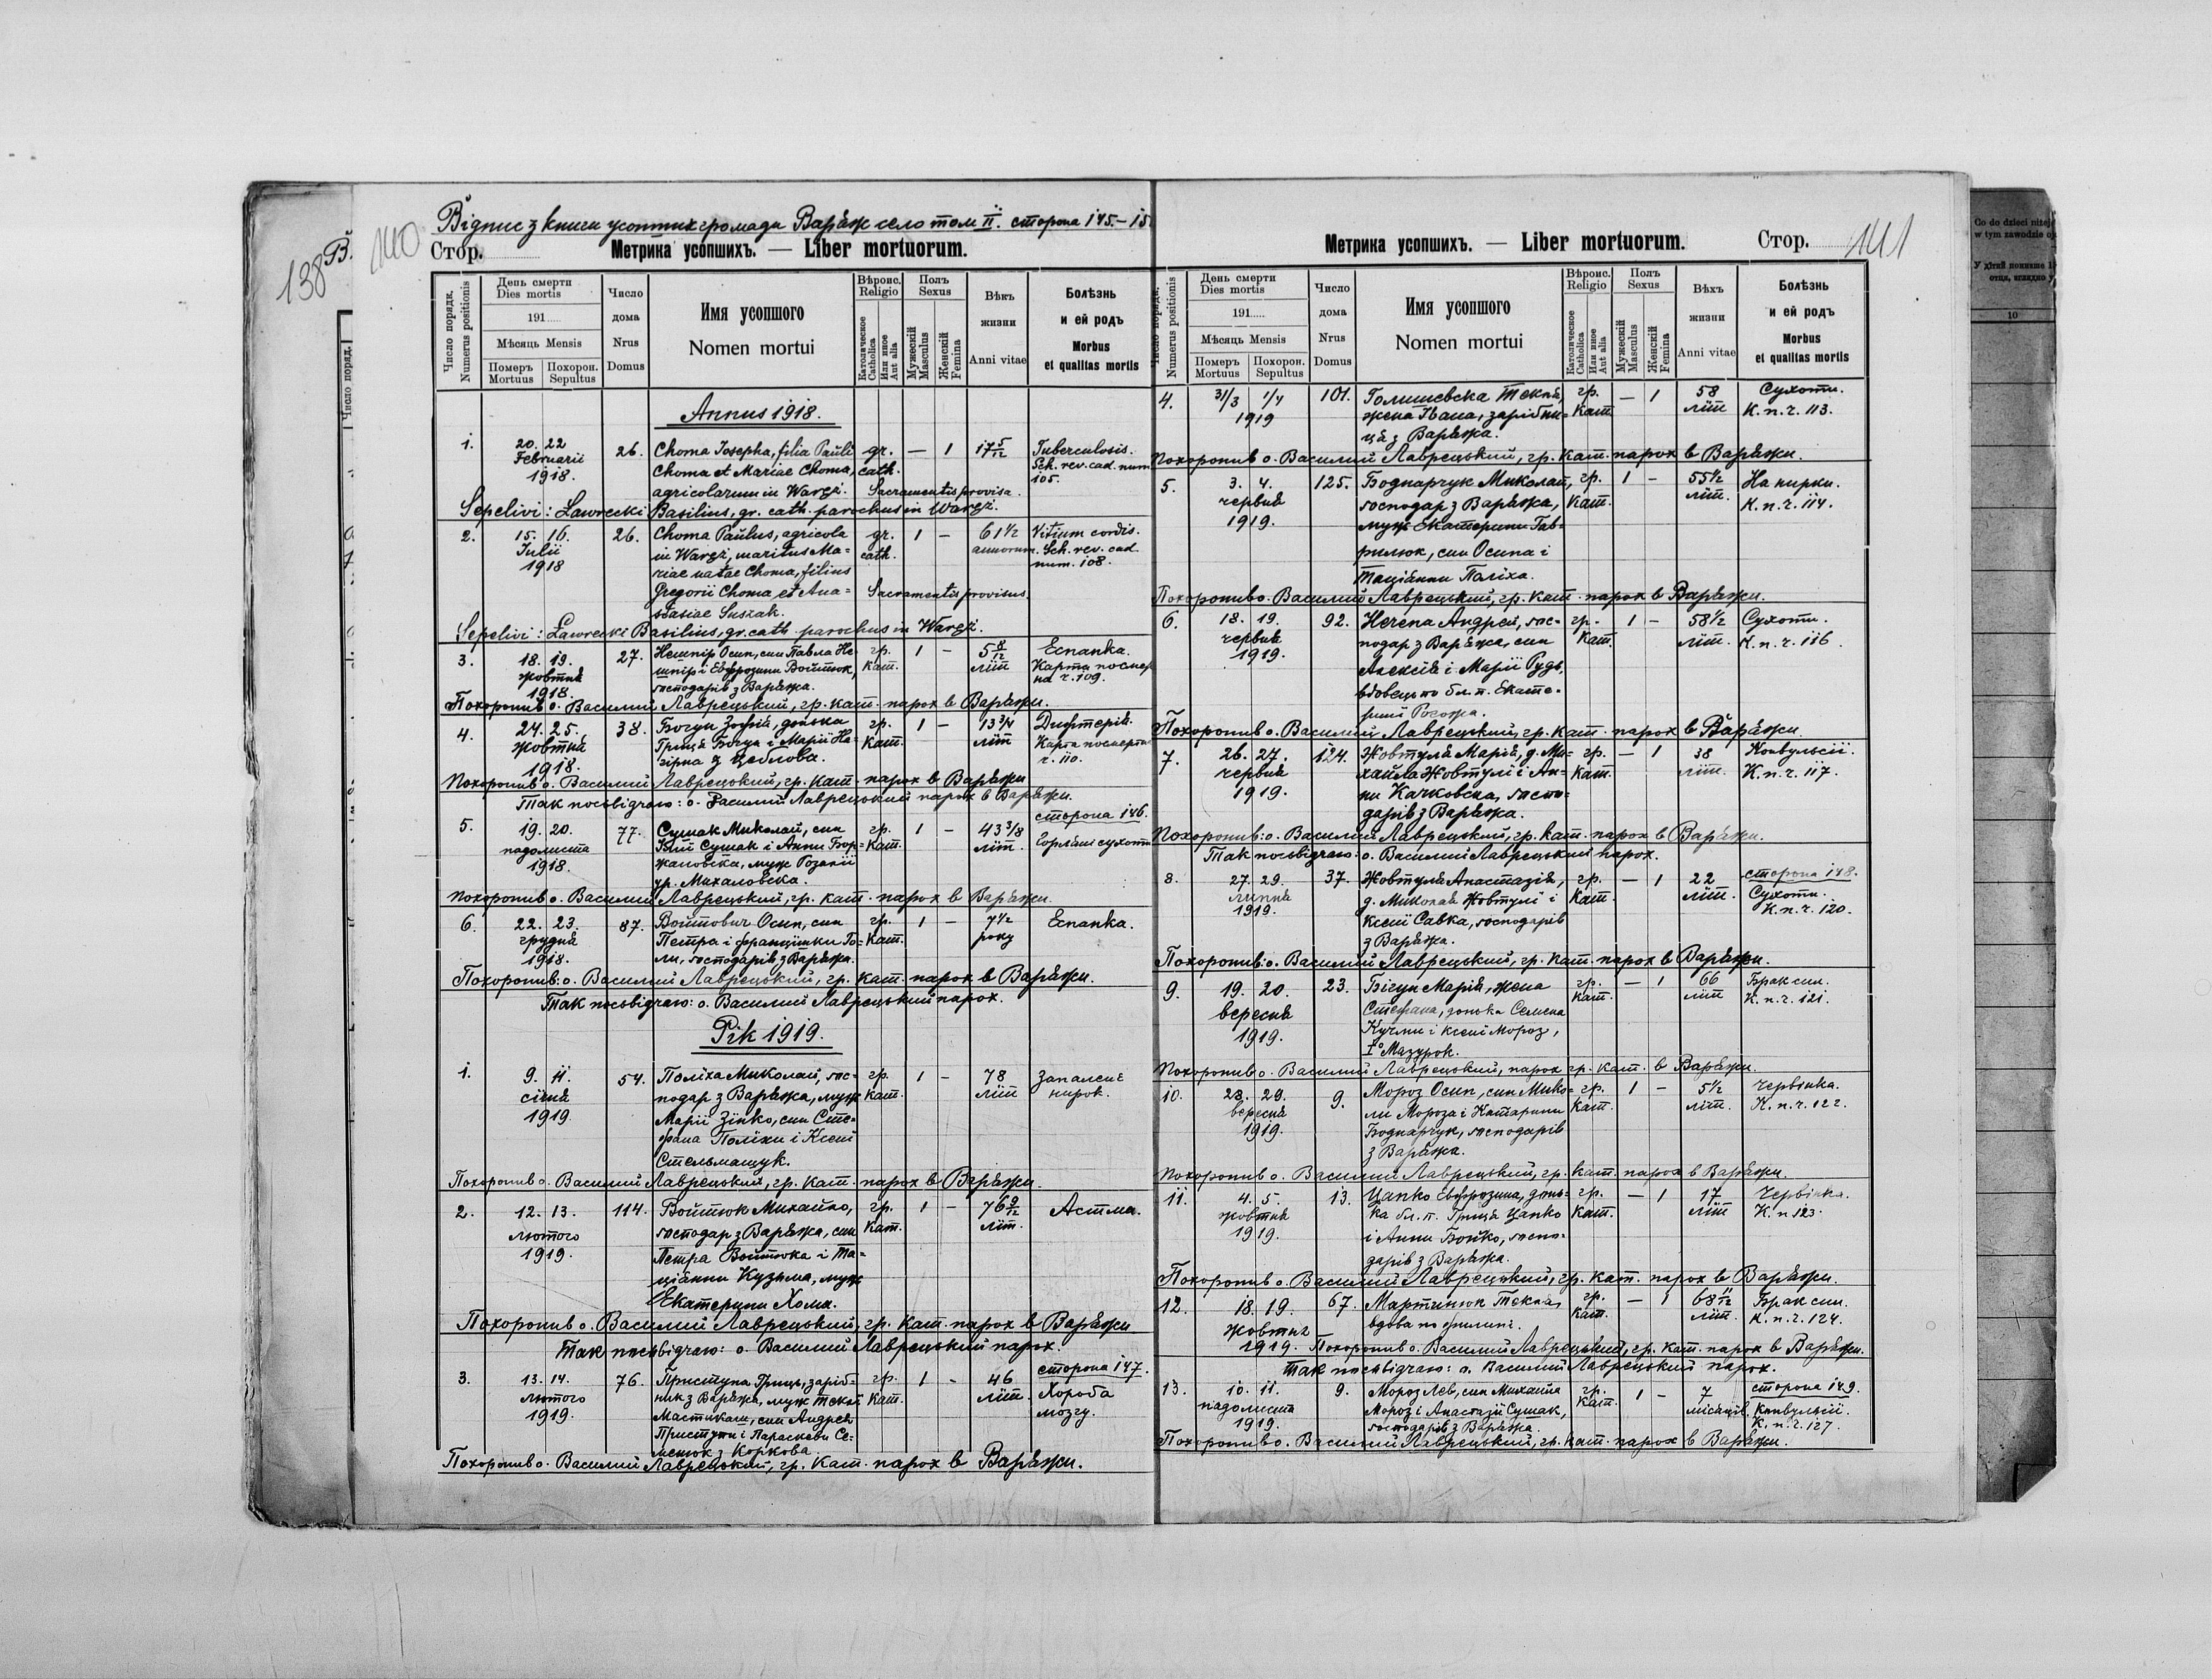 Відпис з книги усопших громади Варяж село том II. сторона 145.–15
138
140
Стор.
Метрика усопшихъ. — Liber mortuorum.
Число поряди.
Numerus positionis
День смерти
Dies mortis
191
Мѣсяць Mensis
Померъ
Mortuus
Похорон.
Sepultus
Число
дома
Nrus
Domus
Имя усопшого
Nomen mortui
Вѣроис.
Religio
Католическое
Catholica
Или иное
Aut alia
Полъ
Sexus
Мужескій
Masculus
Женскій
Femina
Вѣкъ
жизни
Anni vitae
Болѣзнь
и ей родъ
Morbus
et qualitas mortis
Annus 1918.
1. 20. 22 26. Choma Josepha, filia Pauli gr. — 1 17 5/12 Tuberculosis.
Februarii Choma et Mariae Choma, cath. Sch. rev. cad. num.
1918. agricolarum in Waręż. Sacramentis provisa. 105.
Sepelivi: Ławrecki Basilius, gr. cath. parochus in Waręż.
2. 15. 16. 26. Choma Paulus, agricola gr. 1 — 61 1/2 Vitium cordis.
Julii in Waręż, maritus Ma- cath. annorum. Sch. rev. cad.
1918 riae natae Choma, filius num. 108.
Gregorii Choma et Ana- Sacramentis provisus.
stasiae Suszak.
Sepelivi: Ławrecki Basilius, gr. cath. parochus in Waręż.
3. 18. 19. 27. Нешпір Осип, син Павла Не- гр. 1 — 5 Еспанка.
жовтня шпір і Евфрозини Войтюк, кат. літ Карта посмер
1918. господарів з Варяжа. на ч. 109.
Похоронив о. Василий Лаврецький, гр. кат. парох в Варяжи.
4. 24. 25. 38. Богун Зофія, донька гр. 1 — 13 3/4 Дифтерія.
жовтня Гриця Богуна і Марії На- кат. літ Карта посмертна
1918. з Цеблова. ч. 110.
Похоронив о. Василий Лаврецький, гр. кат. парох в Варяжи
Так посьвідчаю: о. Василий Лаврецький парох в Варяжи.
сторона 146.
5. 19. 20. 77. Сушак Миколай, син гр. 1 — 43 3/8 Горляні сухоти
падолиста Сушак і Анни Бор- кат. літ.
1918. жаповска, муж Розалії
ур. Михаловска.
Похоронив о. Василий Лаврецький, гр. кат. парох в Варяжи.
6. 22. 23. 87. Войтович Осип, син гр. 1 — 7 1/2 Еспанка.
грудня Петра і Францішки Го- кат. року
1918. ли, господарів з Варяжа.
Похоронив: о. Василий Лаврецький, гр. кат. парох в Варяжи.
Так посьвідчаю: о. Василий Лаврецький парох.
Рік 1919.
1. 9. 11. 54. Поліха Миколай, гос- гр. 1 — 78 Запаленє
січня подар з Варяжа, муж кат. літ нирок.
1919 Марії Зінко, син Сте-
фана Поліхи і Ксені
Стельмащук.
Похоронив о. Василий Лаврецький, гр. кат. парох в Варяжи.
2. 12. 13. 114. Войтюк Михайло, гр. 1 — 76 9/12 Астма.
лютого господар з Варяжа, син кат. літ.
1919. Петра Войтюка і Та-
ціянни Кузьма, муж
Екатерини Хома.
Похоронив о. Василий Лаврецький, гр. кат. парох в Варяжи
Так посьвідчаю: о. Василий Лаврецький парох.
сторона 147.
3. 13. 14. 76. Приступа Гриць, заріб- гр. 1 - 46 Хороба
лютого ник з Варяжа, муж Теклі кат. літ. мозгу.
1919. син Андрея
Приступи і Параскеви Се-
менюк з Коркова.
Похоронив о. Василий Лаврецький, гр. кат. парох в Варяжи.
Метрика усопшихъ. — Liber mortuorum.
Стор. 141
Число порядк.
Numerus positionis
День смерти
Dies mortis
191
Мѣсяць Mensis
Померъ
Mortuus
Похорон.
Sepultus
Число
дома
Nrus
Domus
Имя усопшого
Nomen mortui
Вѣроис.
Religio
Католическое
Catholica
Или иное
Aut alia
Полъ
Sexus
Мужескій
Masculus
Женскій
Femina
Вѣкъ
жизни
Anni vitae
Болѣзнь
и ей родъ
Morbus
et qualitas mortis
4. 31/3 1/4 101. Голишевска Текля, гр. — 1 58 Сухоти.
1919 жена Івана, зарібни- кат. літ К. п. ч. 113.
ця з Варяжа.
Похоронив о. Василий Лаврецький, гр. кат. парох в Варяжи.
5. 3. 4. 125. Боднарчук Миколай, гр. 1 — 55 1/2 На нирки.
червня господар з Варяжа, кат. літ. К. п. ч. 114.
1919. муж Екатерини Гав-
рилюк, син Осипа і
Таціянни Поліха.
Похоронив о. Василий Лаврецький, гр. кат. парох в Варяжи.
6. 18. 19. 92. Нечепа Андрей, гос- гр. 1 — 58 1/2 Сухоти.
червня подар з Варяжа, син кат. літ. К. п. ч. 116.
1919. Алексія і Марії Рудь,
вдовець по бл. п. Екате-
рині Рогожа.
Похоронив о. Василий Лаврецький, гр. кат. парох в Варяжи.
7. 26. 27. 124. Жовтуля Марія, д. Ми- гр. — 1 38 Конвульсії.
червня хайла Жовтулі і Ан- кат. літ. К. п. ч. 117.
1919. ни Качковска, госпо-
дарів з Варяжа.
Похоронив: о. Василий Лаврецький, гр. кат. парох в Варяжи.
Так посьвідчаю: о. Василий Лаврецький парох.
сторона 148.
8. 27. 29. 37. Жовтуля Анастазія, гр. — 1 22 Сухоти.
липня д. Миколая Жовтулі і кат. літ. К. п. ч. 120.
1919. Ксенї Савка, господарів
з Варяжа.
Похоронив: о. Василий Лаврецький, гр. кат. парох в Варяжи.
9. 19. 20. 23. Бігун Марія, жена гр. — 1 66 Брак сил.
вересня Стефана, донька Семена кат. літ К. п. ч. 121.
1919. Кучми і Ксенї Мороз,
I° Мазурок.
Похоронив о. Василий Лаврецький, парох гр. кат. в Варяжи.
10. 28. 29. 9. Мороз Осип, син Мико- гр. 1 — 5 1/2 Червінка.
вересня ли Мороза і Катарини кат. літ. К. п. ч. 122.
1919. Боднарчук, господарів
з Варяжа.
Похоронив о. Василий Лаврецький, гр. кат. парох в Варяжи.
11. 4. 5. 13. Цапко Евфрозина, донь- гр. — 1 17 Червінка.
жовтня ка бл. п. Гриця Цапко кат. літ К. п 123.
1919. і Анни Бойко, госпо-
дарів з Варяжа.
Похоронив о. Василий Лаврецький, гр. кат. парох в Варяжи.
12. 18. 19. 67. Мартинюк Текля, гр. — 1 68 11/12 Брак сил.
жовтня вдова по Филипі. кат. літ. К. п. ч. 124.
1919. Похоронив о. Василий Лаврецький, гр. кат. парох в Варяжи.
Так посьвідчаю: о. Василий Лаврецький парох.
сторона 149.
13. 10. 11. 9. Мороз Лев, син Михаила гр. 1 — 7 Конвульсії.
падолиста Мороз і Анастазії Сушак, кат. місяців. К. п. ч. 127.
1919. господарів з Варяжа.
Похоронив о. Василий Лаврецький, гр. кат. парох в Варяжи.
Co do dzieci niżej
w tym zawodzie
У дїтий понизше
10